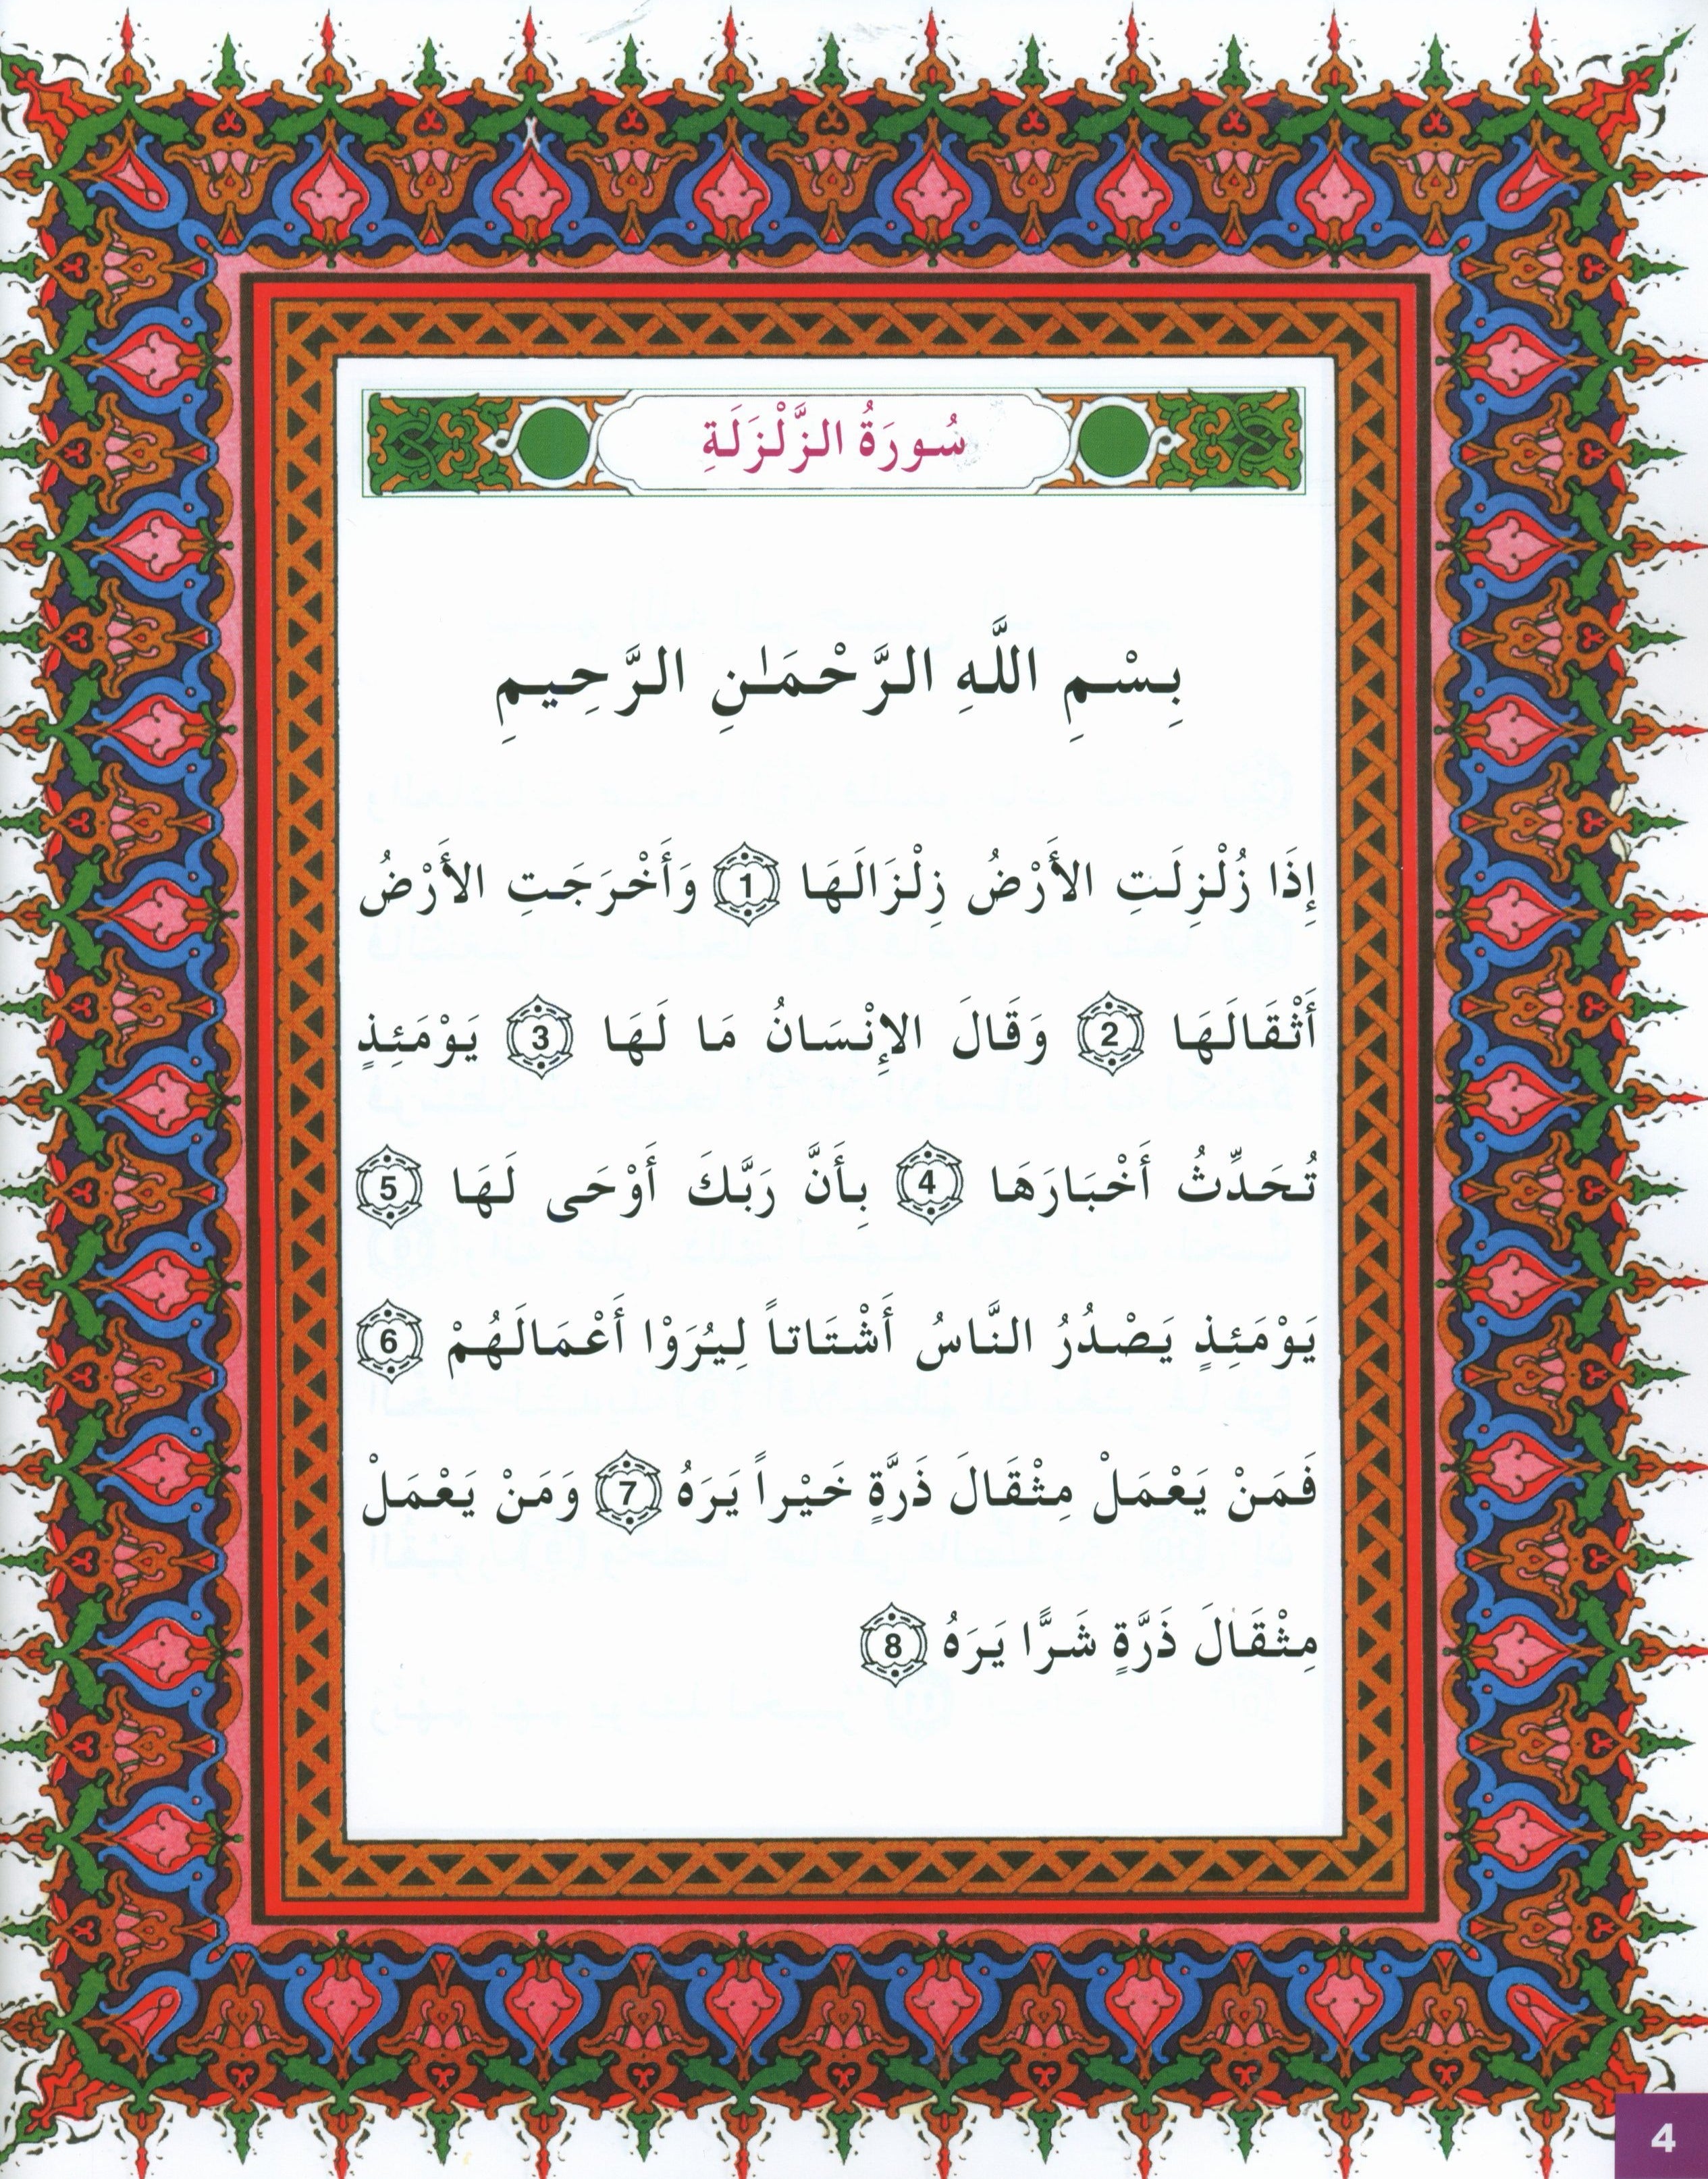 سُورَةُ الزَّلْزَلَةِ
بِسْمِ اللَّهِ الرَّحْمَـٰنِ الرَّحِيمِ
إِذَا زُلْزِلَتِ الأَرْضُ زِلْزَالَهَا 1 وَأَخْرَجَتِ الأَرْضُ
أَثْقَالَهَا 2 وَقَالَ الإِنْسَانُ مَا لَهَا 3 يَوْمَئِذٍ
تُحَدِّثُ أَخْبَارَهَا 4 بِأَنَّ رَبَّكَ أَوْحَى لَهَا 5
يَوْمَئِذٍ يَصْدُرُ النَّاسُ أَشْتَاتاً لِيُرَوْا أَعْمَالَهُمْ 6
فَمَنْ يَعْمَلْ مِثْقَالَ ذَرَّةٍ خَيْراً يَرَهُ 7 وَمَنْ يَعْمَلْ
مِثْقَالَ ذَرَّةٍ شَرًّا يَرَهُ 8
4